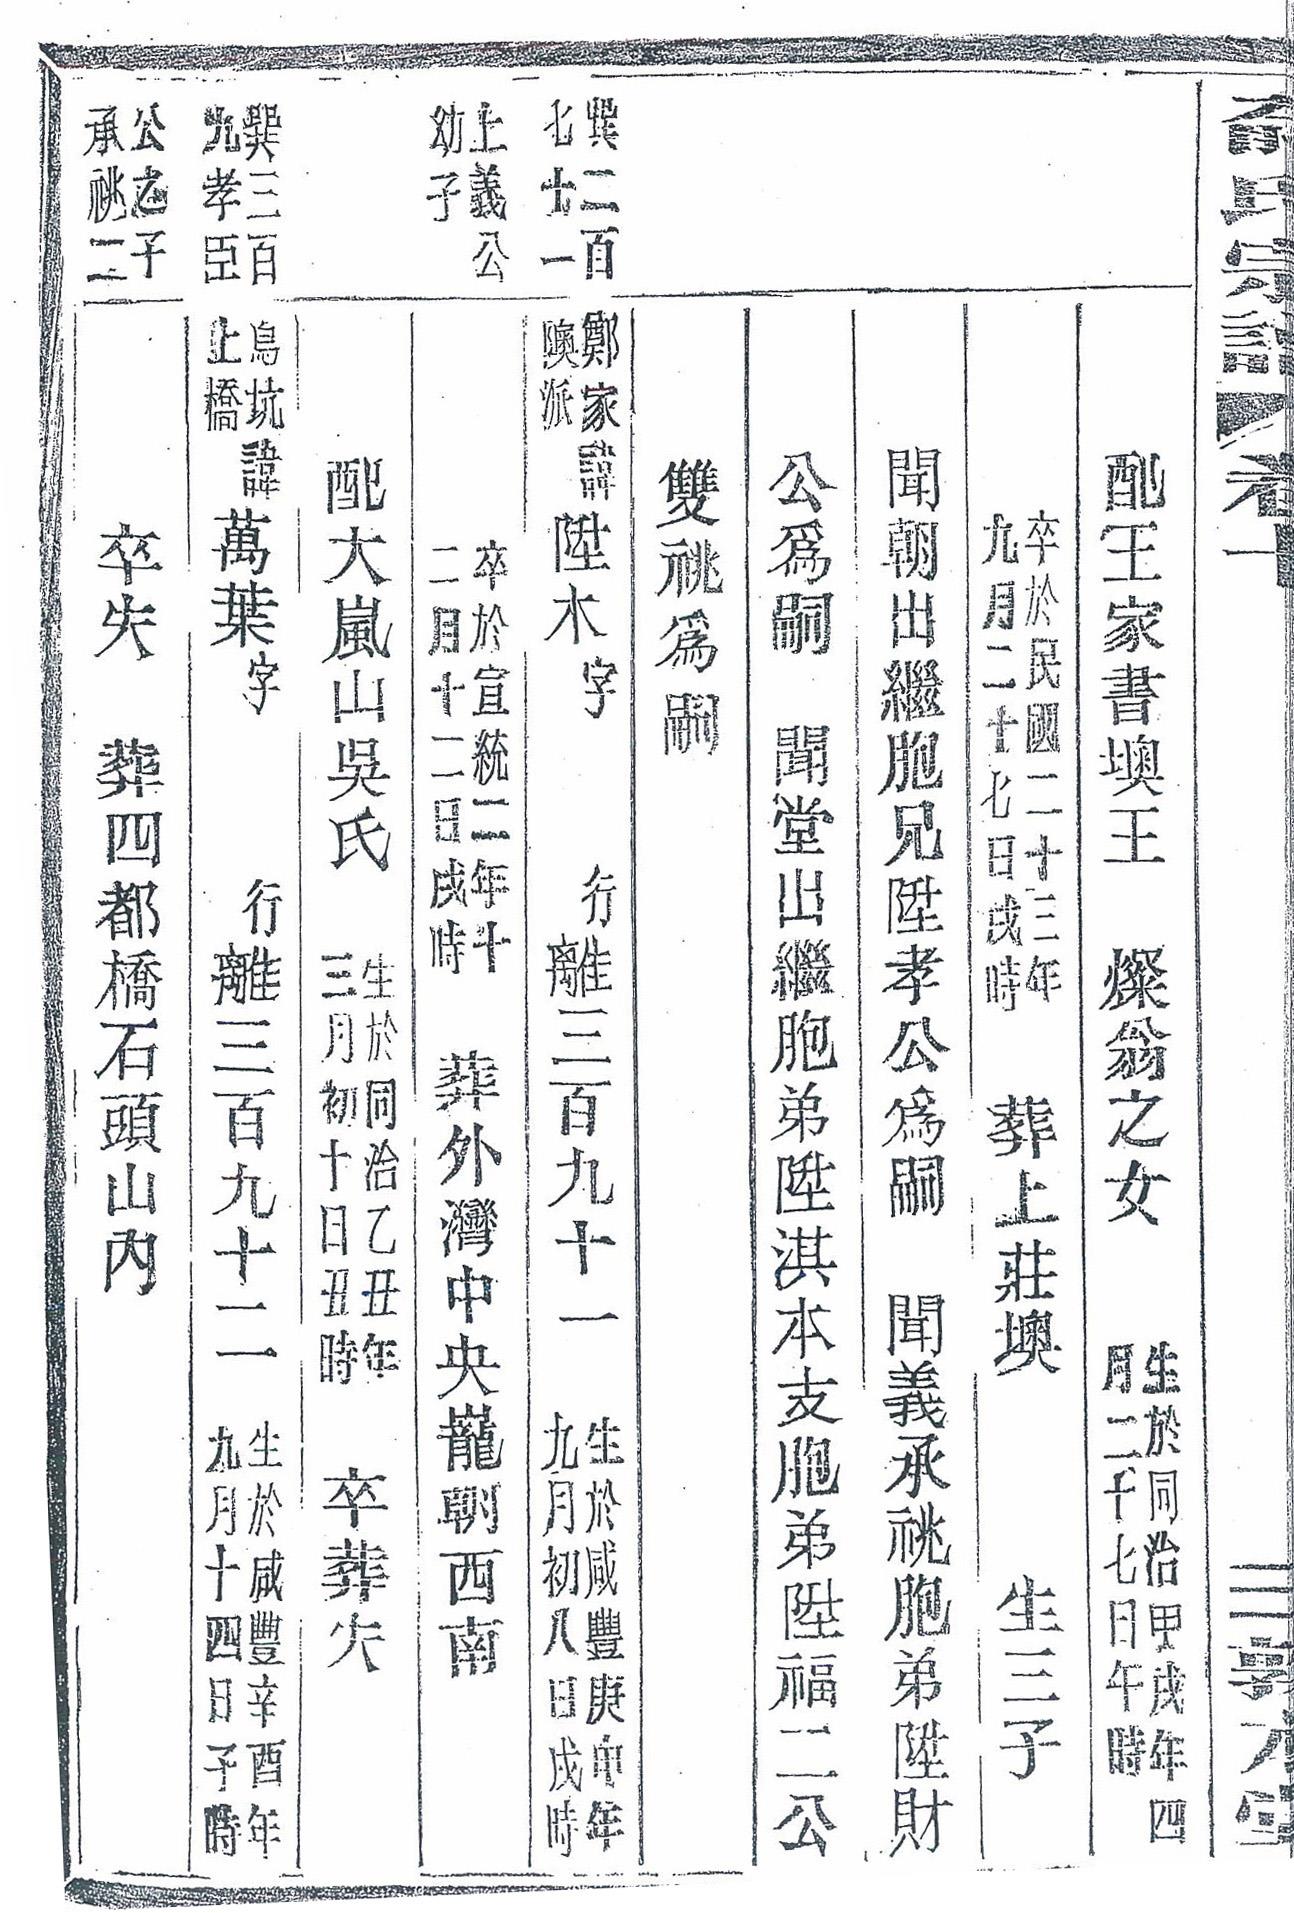 氏宗譜 卷十
配王家書墺王 燦翁之女 生於同治甲戌年四
月二千七日午時
卒於民國二十三年
九月二十七日戌時 葬上莊墺 生三子
聞朝出繼胞兄陞孝公爲嗣 聞義承祧胞弟陞財
公爲嗣 聞堂出繼胞弟陞淇本支胞弟陞福二公
雙祧爲嗣
巽二百
七十一
鄭家
隩派 諱陞木字 行離三百九十一 生於咸豐庚申年
九月初八日戌時
上義公
幼子
卒於宣統二年十
二月十二日戌時 葬外灣中央巃朝西南
配大嵐山吳氏 生於同治乙丑年
三月初十日丑時 卒葬失
巽三百
九孝臣
烏坑
上橋 諱萬葉字 行離三百九十二 生於咸豐辛酉年
九月十四日子時
公之子
承祧二
卒失 葬四都橋石頭山內